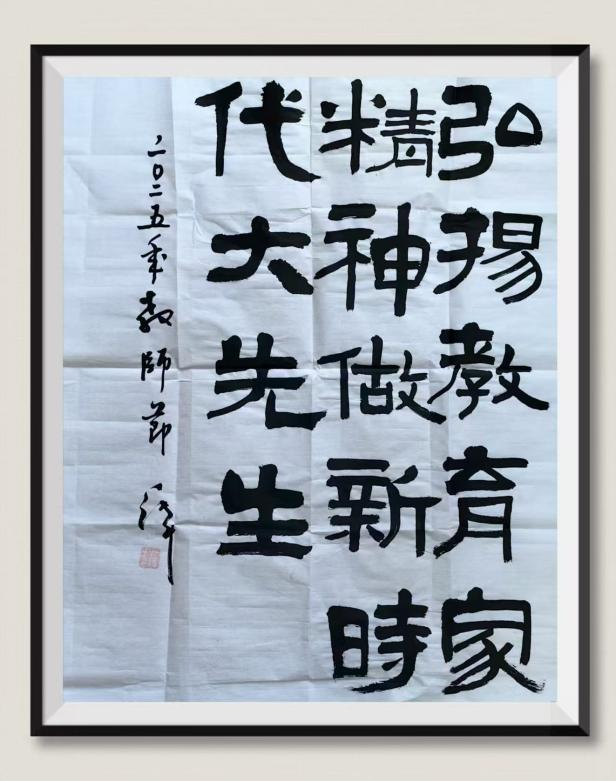 弘揚教育家
精神做新時
代大先生
二〇二五年教師節